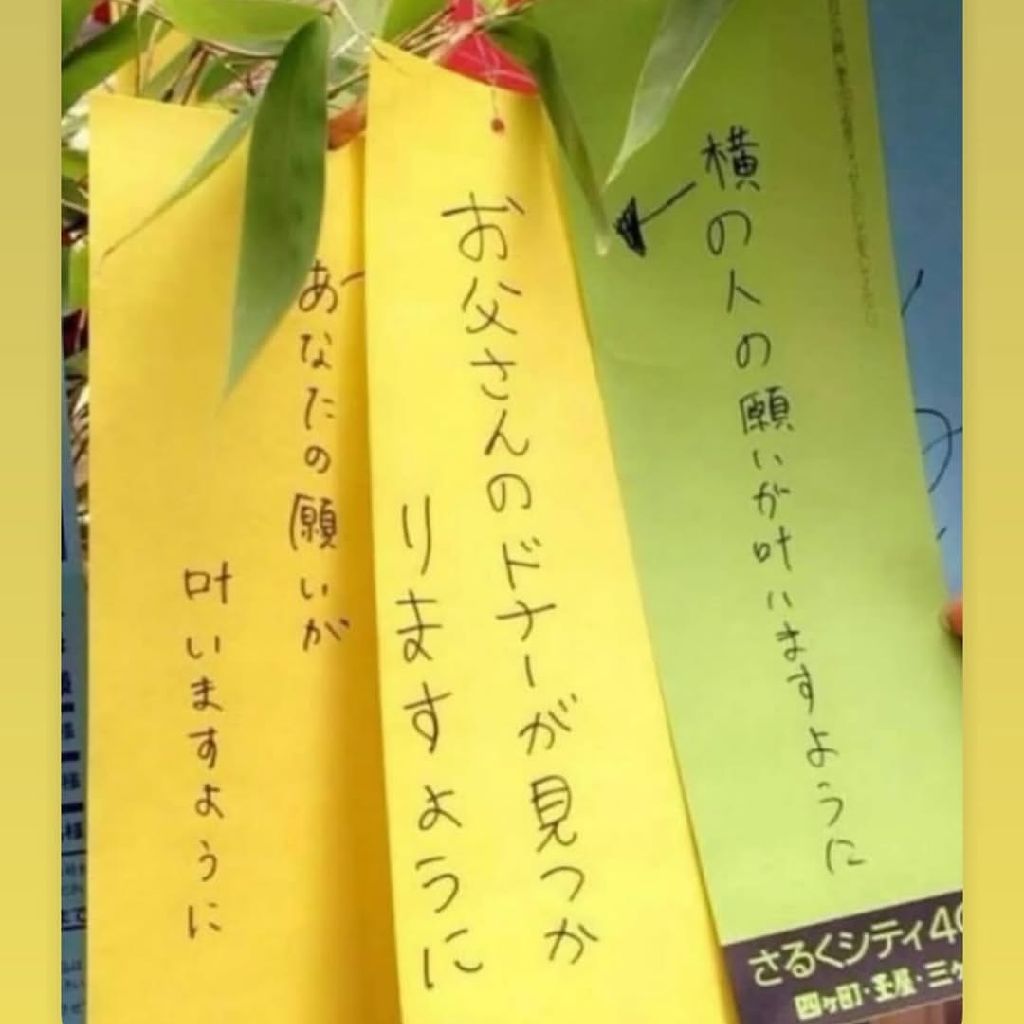 横の人の願いが叶いますように
お父さんのドナーが見つか
りますように
あなたの願いが
叶いますように
さるくシティ40
四ヶ町・玉屋・三ヶ